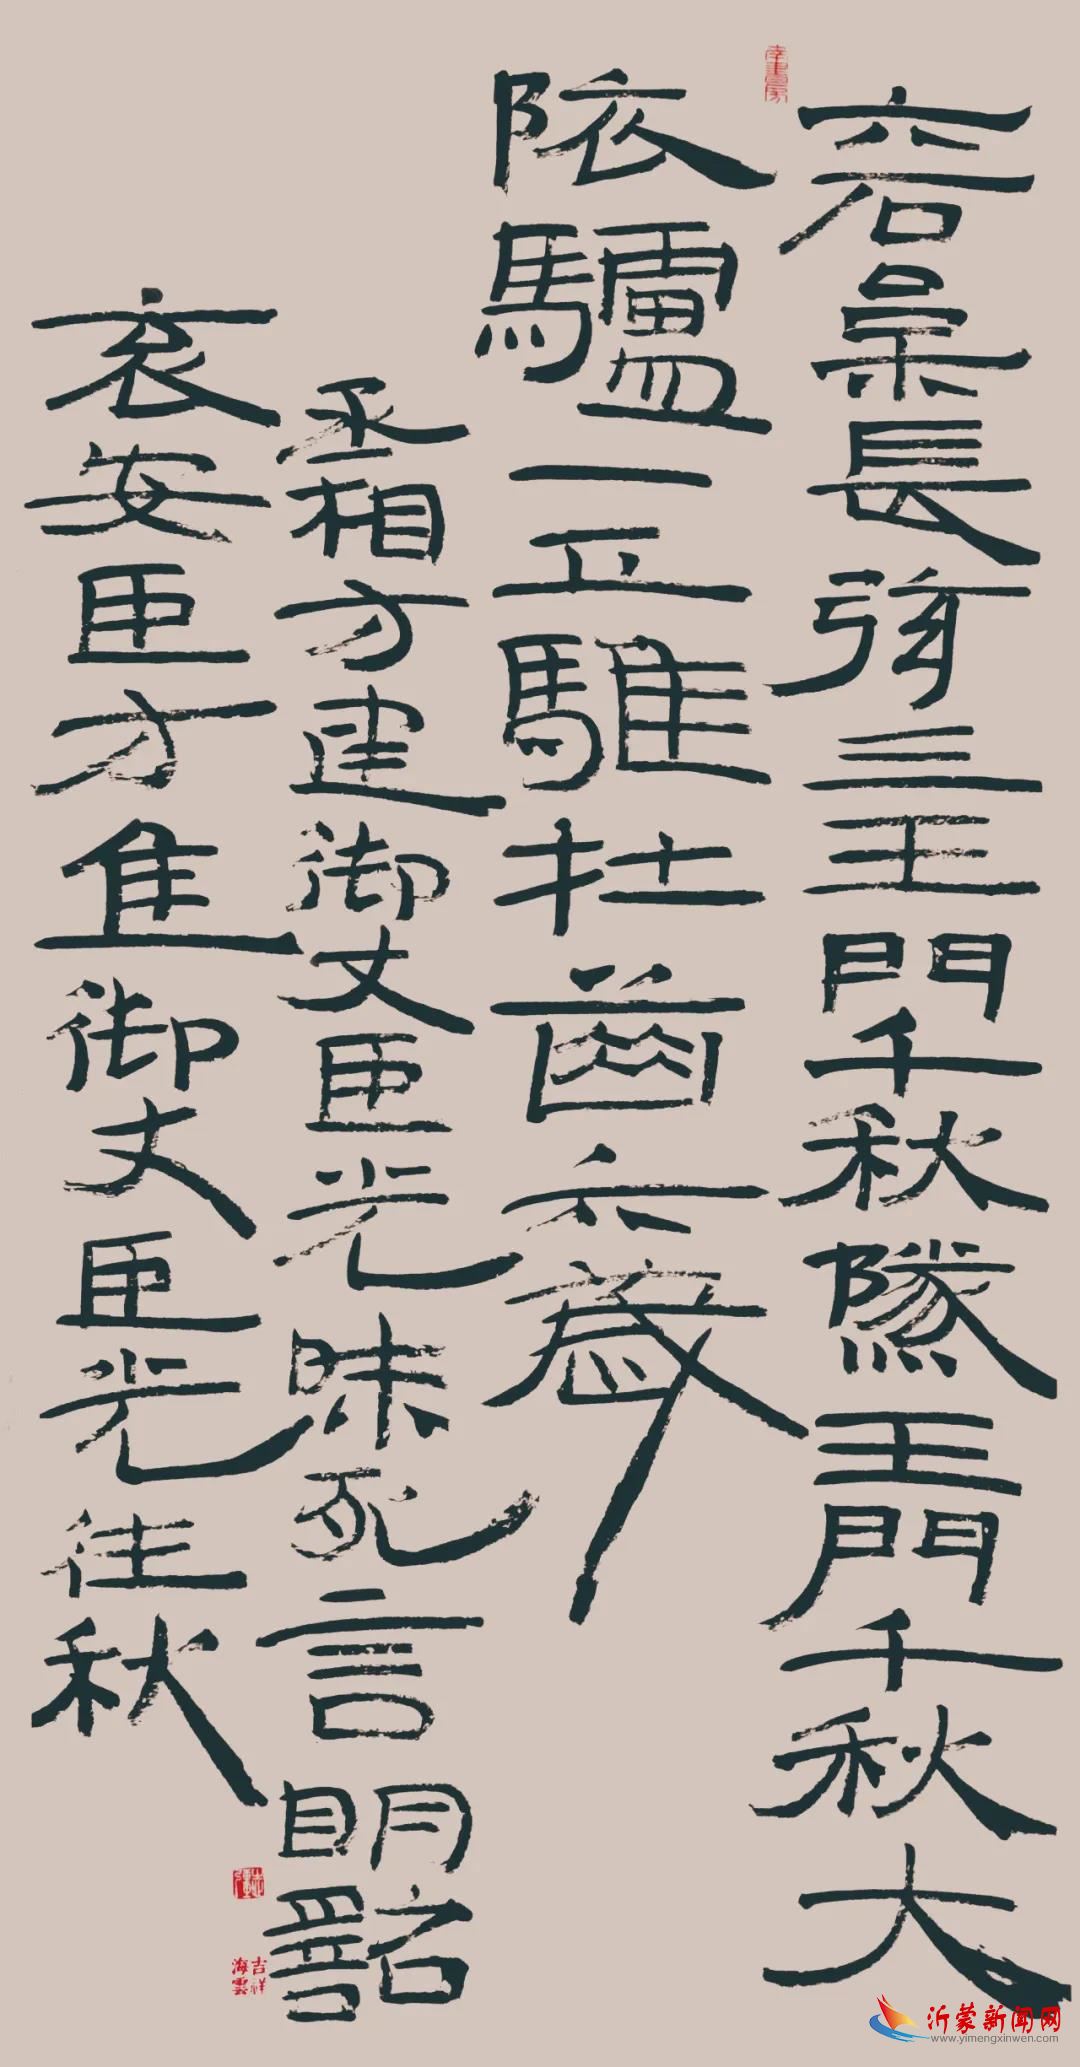 宕渠長張三王門千秋隧王門千秋大
阺驢一匹騅牡齒六歲
丞相方建御史臣光昧死言明詔
哀安臣方進御史臣光往秋
吉祥
海雲
沂蒙新闻网
www.yimengxinwen.com